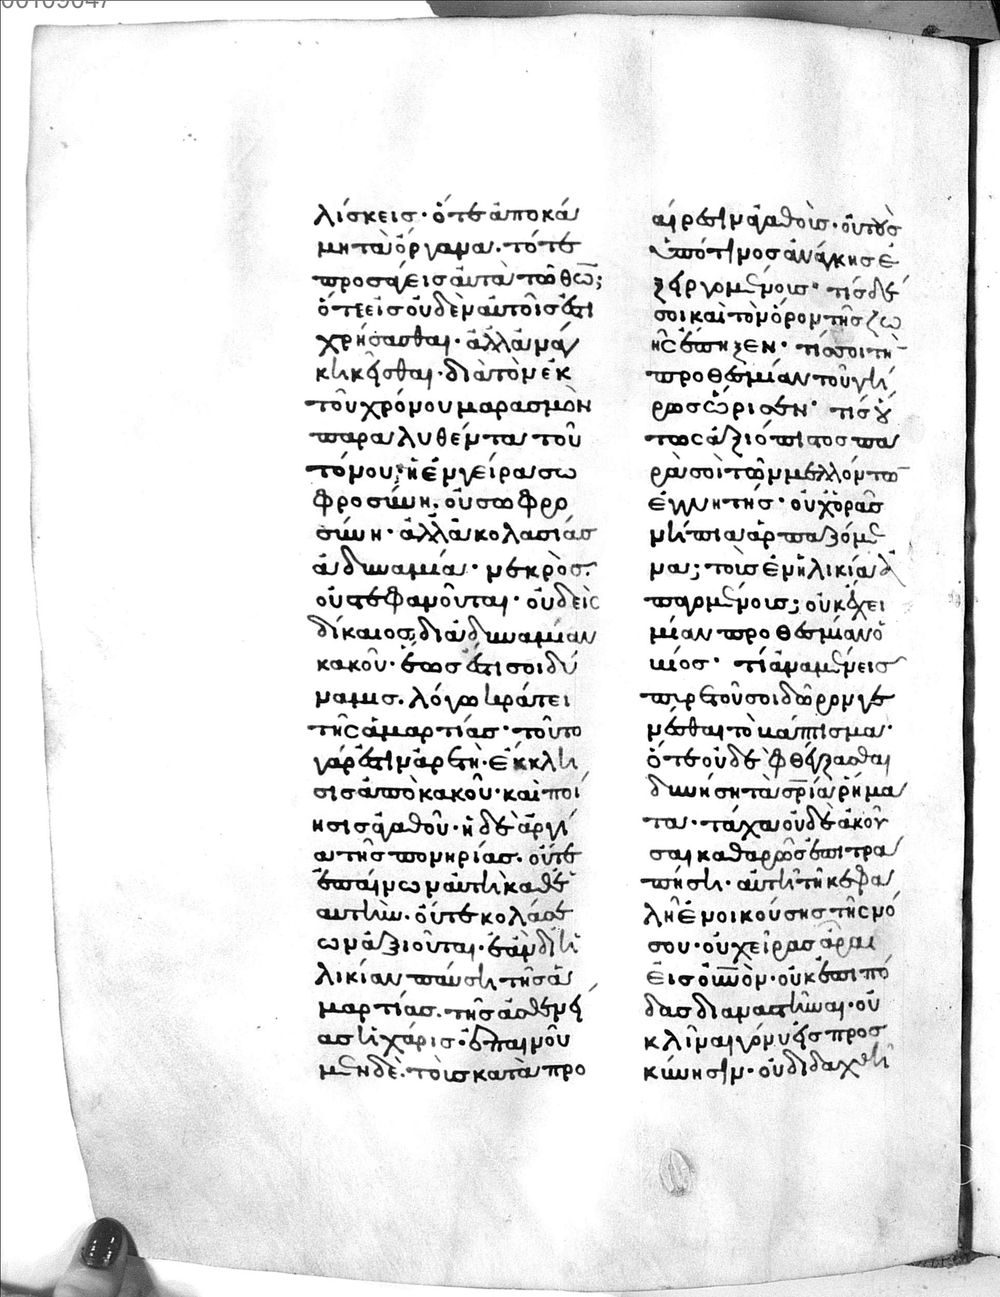 λίσκεις· ὅτε ἀποκά
μη τὰ ὄργανα· τότε
προσάγεις αὐτὰ τῶ θω̅;
ὅτε εἰς οὐδὲν αὐτοῖς ἔτι
χρήσασθαι· ἀλλ' ἀνά
κλικεῖσθαι· διὰ τὸν ἐκ
τοῦ χρόνου μαρασμὸν
παραλυθέντα τοῦ
τόνου; ἡ ἐν γείρα σω
φροσύνη, οὐ σωφρο
σύνη· ἀλλ' ἀκολασίας
ἀδυναμία· νεκρὸς
οὐ στεφανοῦται· οὐδεὶς
δίκαιος, δι' ἀδυναμίαν
κακοῦ· ἕως ἔτι σοι δύ
ναμις. λόγω κράτει
τῆς ἁμαρτίας· τοῦτο
γάρ ἐστιν ἀρετὴ· ἔκκλι
σις ἀπὸ κακοῦ· καὶ ποί
ησις ἀγαθοῦ· ἡ δὲ ἀργί
α τῆς πονηρίας. οὔτε
ἐπαίνων αὐτὴ καθ' ἑ
αυτὴν· οὔτε κολάσε
ων ἀξιοῦται· ἐὰν δι' ἡ
λικίαν παύση τῆς ἁ
μαρτίας. τῆς ἀσθενεί
ας ἡ χάρις· ἐπαινοῦ
μεν δὲ· τοὺς κατὰ προ
αίρεσιν ἀγαθοὺς· οὐ τοὺς
ὑπό τινος ἀνάγκης ἐ
ξειργομένους· τίς δέ
σοι καὶ τὸν ὅρον τῆς ζω
ῆς ἔπηξεν· τίς σοι τὴν
προθεσμίαν τοῦ γή
ρως ὥρισεν· τίς οὕ
τως ἀξιόπιστος πα
ρὰ σοὶ τῶν μελλόντων
ἐγγυητής· οὐχ ὁρᾶς
νήπια ἁρπαζόμε
να; τοὺς ἐν ἡλικία ἀ
παγομένους; οὐκ ἔχει
μίαν προθεσμίαν ὁ
βίος· τί ἀναμένεις
πυρετοῦ σοι δῶρον γε
νέσθαι τὸ βάπτισμα·
ὅτε οὐδὲ φθέγξασθαι
δυνήση τὰ σρ̅ία ῥήμα
τα· τάχα οὐδὲ ἀκοῦ
σαι καθαρῶς ἐπιτρα
πήση· αὐτῆ τῆ κεφα
λῆ ἐνοικούσης τῆς νό
σου· οὐ χεῖρας ἆραι
εἰς οὐ̅νὸν· οὐκ ἐπὶ πό
δας διαναστῆναι· οὐ
κλῖναι γόνυ εἰς προσ
κύνησιν· οὐ διδαχθῆ